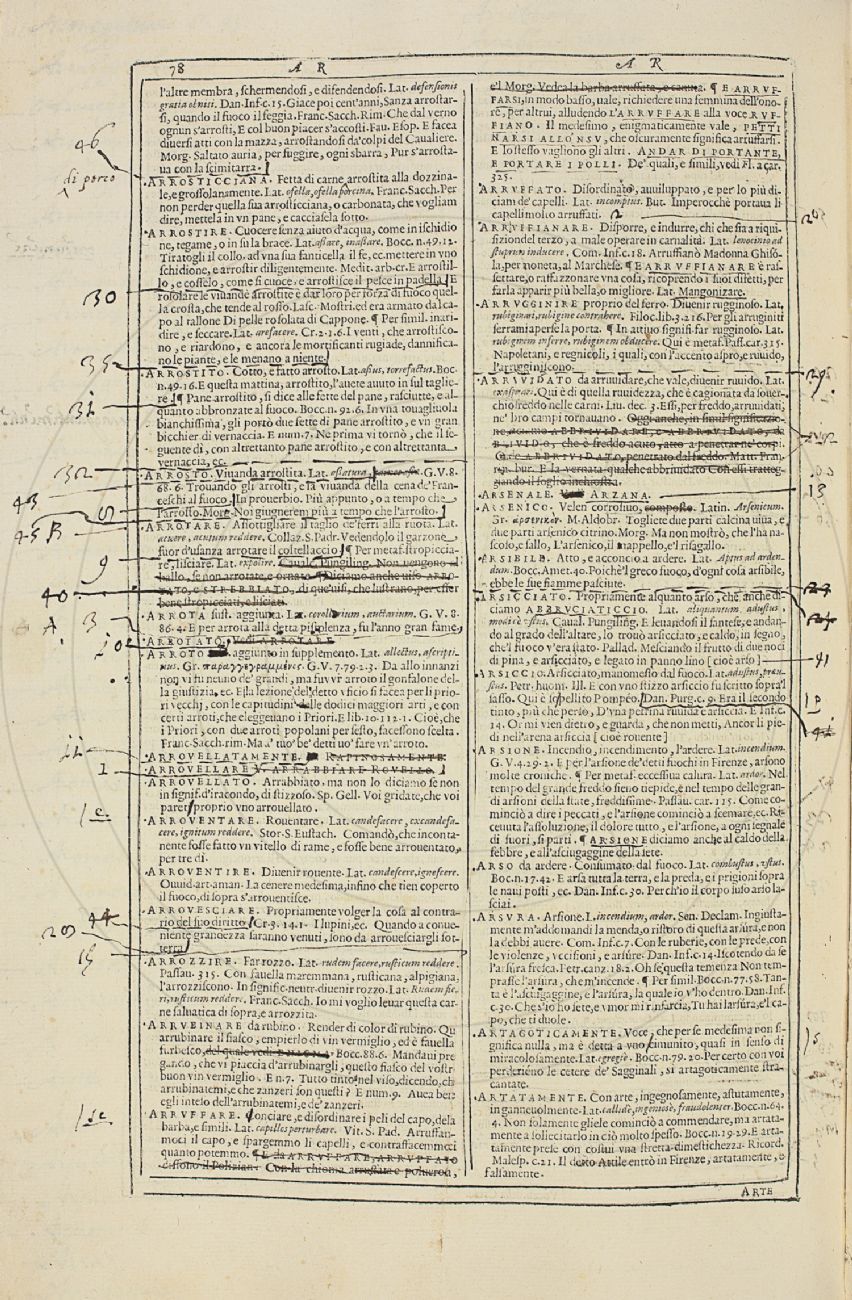 78 A R
A R
l'altre membra, schermendosi, e difendendosi. Lat. defensionis
gratia obniti. Dan. Inf. c. 15. Giace poi cent'anni, Sanza arrostar-
si, quando il fuoco il feggia. Franc. Sacch. Rim. Che dal verno
ognun s'arrosti, E col buon piacer s'accosti. Fau. Esop. E facea
diuersi atti con la mazza, arrostandosi da' colpi del Caualiere.
Morg. Saltato auria, per fuggire, ogni sbarra, Pur s'arrosta-
ua con la scimitarra.
46
di porco
ARROSTICCIANA. Fetta di carne arrostita alla dozzina-
le, e grossolanamente. Lat. ofella, ofella porcina. Franc. Sacch. Per
non perder quella sua arrosticciana, o carbonata, che vogliam
dire, mettela in vn pane, e cacciasela sotto.
ARROSTIRE. Cuocere senza aiuto d'acqua, come in ischidio
ne, tegame, o in su la brace. Lat. assare, inassare. Bocc. n. 49. 12.
Tiratogli il collo, ad vna sua fanticella il fe, ec. mettere in vno
schidione, e arrostir diligentemente. Medit. arb. cr. E arrostil-
lo, e cosselo, come si cuoce, e arrostisce il pesce in padella. E
30
rosolare le viuande arrostite è dar loro per forza di fuoco quel-
la crosta, che tende al rosso. Lasc. Mostri. ed era armato dal ca-
po al tallone Di pelle rosolata di Cappone. ¶ Per simil. inari-
dire, e seccare. Lat. arefacere. Cr. 2. 1. 6. I venti, che arrostisco-
no, e riardono, e ancora le mortificanti rugiade, dannifica-
no le piante, e le menano a niente.
35
ARROSTITO. Cotto, e fatto arrosto. Lat. assus, torrefactus. Boc.
n. 49. 16. E questa mattina, arrostito, l'auete auuto in sul taglie-
re. ¶ Pane arrostito, si dice alle fette del pane, rasciutte, e al-
31
quanto abbronzate al fuoco. Bocc. n. 92. 6. In vna touagliuola
bianchissima, gli portò due fette di pane arrostito, e vn gran
bicchier di vernaccia. E num. 7. Ne prima vi tornò, che il se-
guente dì, con altrettanto pane arrostito, e con altrettanta
vernaccia, ec.
32
ARROSTO. Viuanda arrostita. Lat. assatura, G. V. 8.
43
68. 6. Trouando gli arrosti, e la viuanda della cena de' Fran-
ceschi al fuoco. In prouerbio. Più appunto, o a tempo che
l'arrosto. Morg. Noi giugneremo più a tempo che l'arrosto.
45 B
ARROTARE. Assottigliare il taglio de' ferri alla ruota. Lat.
acuere, acutum reddere. Collaz. S. Padr. Vedendolo il garzone
fuor d'usanza arrotare il coltellaccio. ¶ Per metaf. stropiccia-
9
re, lisciare. Lat. expolire. Caual. Pungiling. Non uengono al
ballo, se non arrotate, e ornate. ¶ Diciamo anche uiso ARRO-
40
TATO, o STREBBIATO, di que' uisi, che lustrano, per esser
bene stropicciati, e lisciati.
3
ARROTA sust. aggiunta. Lat. corollarium, auctarium. G. V. 8.
86. 4. E per arrota alla detta pistolenza, fu l'anno gran fame.
A
ARROTATO. Vedi ARROTARE.
10
ARROTO aggiunto in supplemento. Lat. allectus, ascripti-
nus. Gr. παραγγεγραμμένος. G. V. 7. 79. 2. 3. Da allo innanzi
non vi fu neuno de' grandi, ma fuui vn' arroto il gonfalone del-
la giustizia, ec. E la lezione del detto vficio si facea per li prio-
ri vecchj, con le capitudini delle dodici maggiori arti, e con
certi arroti, che eleggeuano i Priori. E lib. 10. 112. 1. Cioè, che
i Priori, con due arroti popolani per sesto, facessono scelta.
Franc. Sacch. rim. Ma a' tuo' be' detti uo' fare vn' arroto.
11
ARROVELLATAMENTE. RAPINOSAMENTE.
1
ARROVELLARE. ARRABBIARE. ROVELLO.
ARROVELLATO. Arrabbiato, ma non lo diciamo se non
in signif. d'iracondo, di stizzoso. Sp. Gell. Voi gridate, che voi
parete proprio vno arrouellato.
ARROVENTARE. Rouentare. Lat. candefacere, excandefa-
cere, ignitum reddere. Stor. S. Eustach. Comandò, che inconta-
nente fosse fatto vn vitello di rame, e fosse bene arrouentato,
per tre dì.
ARROVENTIRE. Diuenir rouente. Lat. candescere, ignescere.
Ouuid. art. aman. La cenere medesima, infino che tien coperto
il fuoco, di sopra s'arrouentisce.
ARROVESCIARE. Propriamente volger la cosa al contra-
44
rio del suo diritto. Cr. 3. 14. 1. I lupini, ec. Quando a conue-
nente grandezza saranno venuti, sono da arrouesciargli sot-
terra.
15
ARROZZIRE. Far rozzo. Lat. rudem facere, rusticum reddere.
Passau. 315. Con fauella maremmana, rusticana, alpigiana,
l'arrozziscono. In signific. neutr. diuenir rozzo. Lat. Rudem fie-
ri, rusticum reddere. Franc. Sacch. Io mi voglio leuar questa car-
ne saluatica di sopra, e arrozzita.
ARRVBINARE da rubino. Render di color di rubino. Qu
arrubinare il fiasco, empierlo di vin vermiglio, ed è fauella
furbesco, Bocc. 88. 6. Mandaui pre
gando, che vi piaccia d'arrubinargli, questo fiasco del vostr
buon vin vermiglio. E n. 7. Tutto tinto nel viso, dicendo, ch
arrubinatemi, e che zanzeri son questi? E num. 9. Auea ben
egli intelo dell'arrubinatemi, e de' zanzeri.
ARRVFFARE. Sconciare, e disordinare i peli del capo, della
barba, e simili. Lat. capillos perturbare. Vit. S. Pad. Arruffam-
moci il capo, e spargemmo li capelli, e contraffacemmoci
quanto potemmo. ¶ E da ARRVFFARE, ARRVFFATO
dissono il Polizian. Con la chioma arruffata e poluerosa,
e'l Morg. Vedea la barba arruffata, e canuta. ¶ E ARRVF-
FARSI, in modo basso, uale, richiedere una femmina dell'ono-
re, per altrui, alludendo L'ARRVFFARE alla voce RVF-
FIANO. Il medesimo, enigmaticamente vale, PETTI
NARSI ALL'ONSV, che oscuramente significa arruffarsi.
E lo stesso vagliono gli altri. ANDAR DI PORTANTE,
E PORTARE I POLLI. De' quali, e simili, vedi Fl. a car.
325.
ARRVFFATO. Disordinato, auuiluppato, e per lo più di-
ciam de' capelli. Lat. incomptus. But. Imperocchè portaua li
capelli molto arruffati.
ARRVFFIANARE. Disporre, e indurre, chi che sia a riqui-
sizion del terzo, a male operare in carnalità. Lat. lenocinio ad
stuprum inducere. Com. Inf. c. 18. Arruffianò Madonna Ghiso-
la, per moneta, al Marchese. ¶ E ARRVFFIANARE è raf-
fettare, o raffazzonare vna cosa, ricoprendo i suoi difetti, per
farla apparir più bella, o migliore. Lat. Mangonizare.
ARRVGGINIRE proprio del ferro. Diuenir rugginoso. Lat.
rubiginari, rubiginem contrahere. Filoc. lib. 3. 216. Per gli arruginiti
serrami aperse la porta. ¶ In attiuo signif. far rugginoso. Lat.
rubiginem inferre, rubiginem obducere. Qui è metaf. Pass. car. 315.
Napoletani, e regnicoli, i quali, con l'accento aspro, e ruuido,
l'arrugginiscono.
ARRVVIDATO da arruuidare, che vale, diuenir ruuido. Lat.
exasperatus. Qui è di quella ruuidezza, che è cagionata da souer-
chio freddo nelle carni. Liu. dec. 3. Essi, per freddo, arruuidati,
ne' lor campi tornauano.
ARSENALE. ARZANA.
13
ARSENICO. Velen corrosiuo, composto. Latin. Arsenicum.
Gr. ἀρσενικόν. M. Aldobr. Togliete due parti calcina uiua, e
due parti arsenico citrino. Morg. Ma non mostrò, che l'ha na-
scoso, e fallo, L'arsenico, il nappello, e'l risagallo.
ARSIBILE. Atto, e acconcio a ardere. Lat. Aptus ad arden-
dum. Bocc. Amet. 40. Poichè'l greco fuoco, d'ogni cosa arsibile,
ebbe le sue fiamme pasciute.
ARSICCIATO. Propriamente alquanto arso, che anche di-
ciamo ABBRVCIATICCIO. Lat. aliquantum adustus,
modicè ustus. Caual. Pungiling. E leuandosi il fantese, e andan-
do al grado dell'altare, lo trouò arsicciato, e caldo, in segno,
che'l fuoco v'era stato. Pallad. Mesciando il frutto di due noci
di pina, e arsicciato, e legato in panno lino [cioè arso]
41
ARSICCIO. Arsicciato, manomesso dal fuoco. Lat. adustus, praeu-
stus. Petr. huom. Ill. E con vno stizzo arsiccio fu scritto sopra'l
sasso. Qui è sepellito Pompéo. Dan. Purg. c. 9. Era il secondo
tinto, più che perso, D'vna petrina ruuida e arsiccia. E Inf. c.
14. Or mi vien dietro, e guarda, che non metti, Ancor li pie-
di nell'arena arsiccia [cioè rouente]
ARSIONE. Incendio, incendimento, l'ardere. Lat. incendium.
G. V. 4. 29. 2. E per l'arsione de' detti fuochi in Firenze, arsono
molte croniche. ¶ Per metaf. eccessiua calura. Lat. ardor. Nel
tempo del grande freddo sieno tiepide, e nel tempo delle gran-
di arsioni della state, freddissime. Passau. car. 115. Come co-
minciò a dire i peccati, e l'arsione cominciò a scemare, ec. Ri-
ceuuta l'assoluzione, il dolore tutto, e l'arsione, a ogni segnale
di fuori, si partì. ¶ ARSIONE diciamo anche al caldo della
febbre, e all'asciugaggine della sete.
ARSO da ardere. Consumato dal fuoco. Lat. combustus, ustus.
Bocc. n. 17. 42. E arsa tutta la terra, e la preda, e i prigioni sopra
le naui posti, ec. Dan. Inf. c. 30. Perch'io il corpo suso arso la-
sciai.
ARSVRA. Arsione. L. incendium, ardor. Sen. Declam. Ingiusta-
mente m'addomandi la menda, o ristoro di questa arsura, e non
la debbi auere. Com. Inf. c. 7. Con le ruberie, con le prede, con
le violenze, vccisioni, e arsure. Dan. Inf. c. 14. Iscotendo da se
l'arsura fresca. Petr. canz. 18. 2. Oh se questa temenza Non tem-
prasse l'arsura, che m'incende. ¶ Per simil. Bocc. n. 77. 58. Tan-
ta è l'asciugaggine, e l'arsura, la quale io v'ho dentro. Dan. Inf.
c. 30. Che s'i' ho sete, e vmor mi rinfarcia, Tu hai l'arsura, e'l ca-
po, che ti duole.
15
ARTAGOTICAMENTE. Voce, che per se medesima non si-
gnifica nulla, ma è detta a vno simunito, quasi in senso di
miracolosamente. Lat. egregiè. Bocc. n. 79. 20. Per certo con voi
perderieno le cetere de' Sagginali, sì artagoticamente stra-
cantate.
ARTATAMENTE. Con arte, ingegnosamente, astutamente,
ingannueolmente. Lat. callidè, ingeniosè, fraudolenter. Bocc. n. 64.
4. Non solamente gliele cominciò a commendare, ma artata-
mente a sollecitarlo in ciò molto spesso. Bocc. n. 19. 29. E arta-
tamente prese con costui vna stretta dimestichezza. Ricord.
Malesp. c. 21. Il detto Attile entrò in Firenze, artatamente, e
falsamente.
ARTE